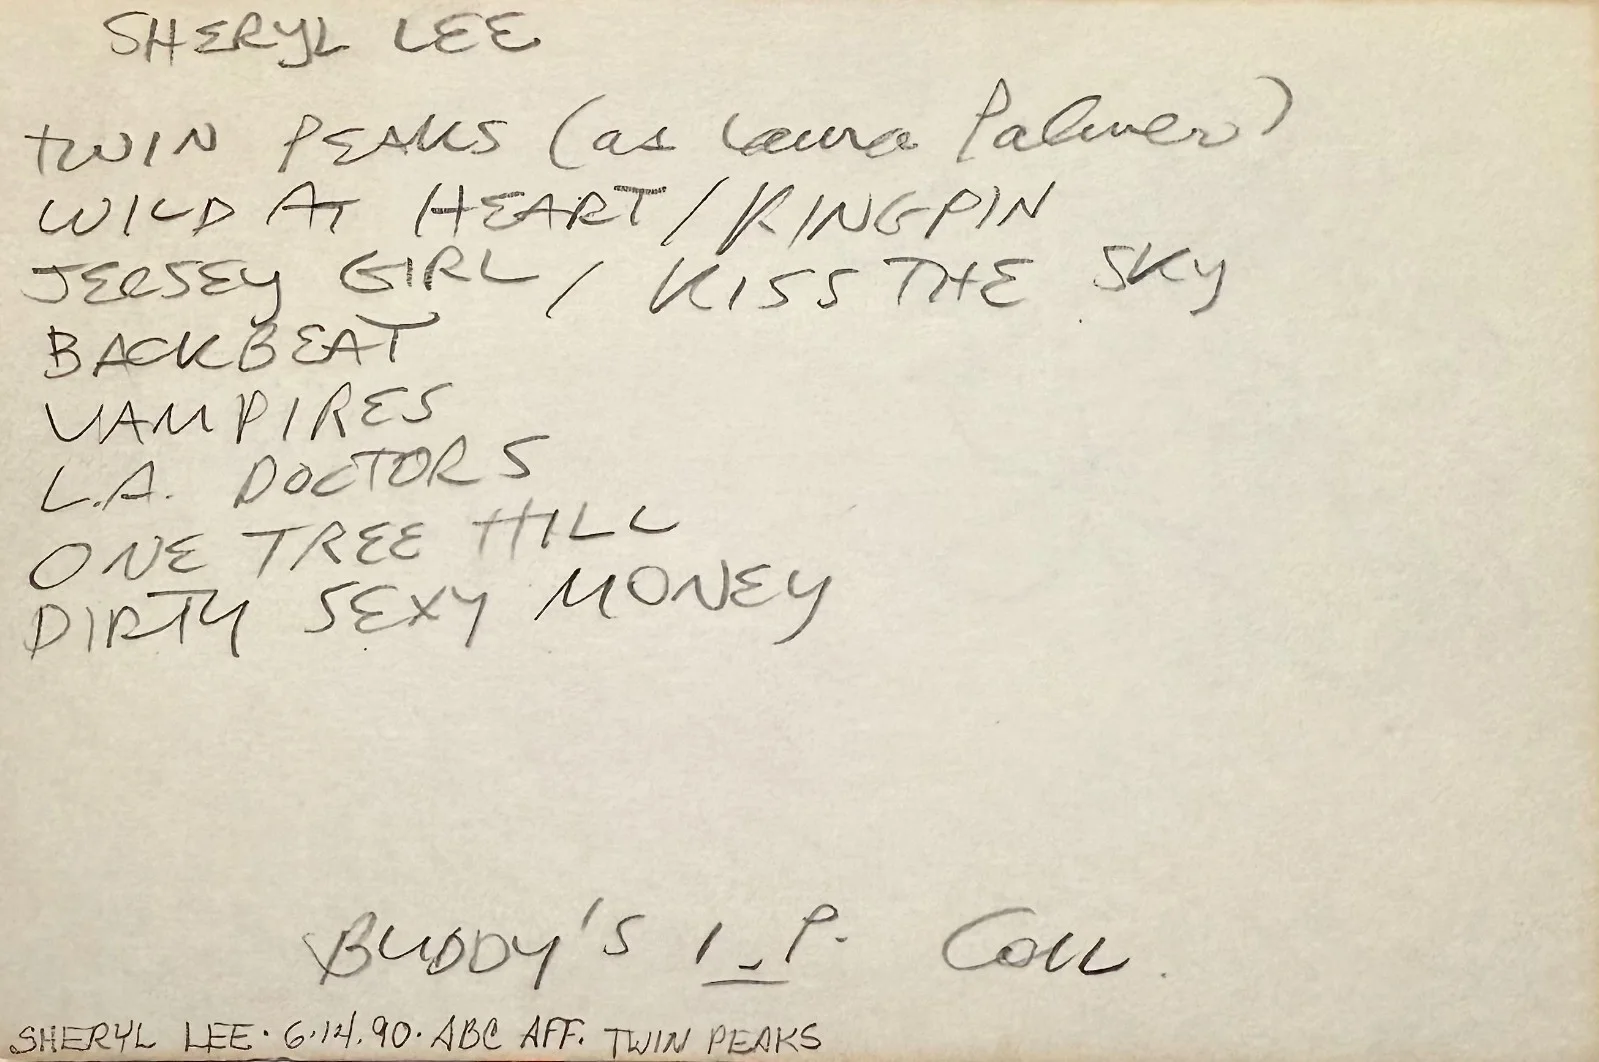 SHERYL LEE
TWIN PEAKS (as Laura Palmer)
WILD AT HEART / KINGPIN
JERSEY GIRL / KISS THE SKY
BACKBEAT
VAMPIRES
L.A. DOCTORS
ONE TREE HILL
DIRTY SEXY MONEY
BUDDY'S I.P. Coll.
SHERYL LEE · 6·14.90 · ABC AFF. TWIN PEAKS